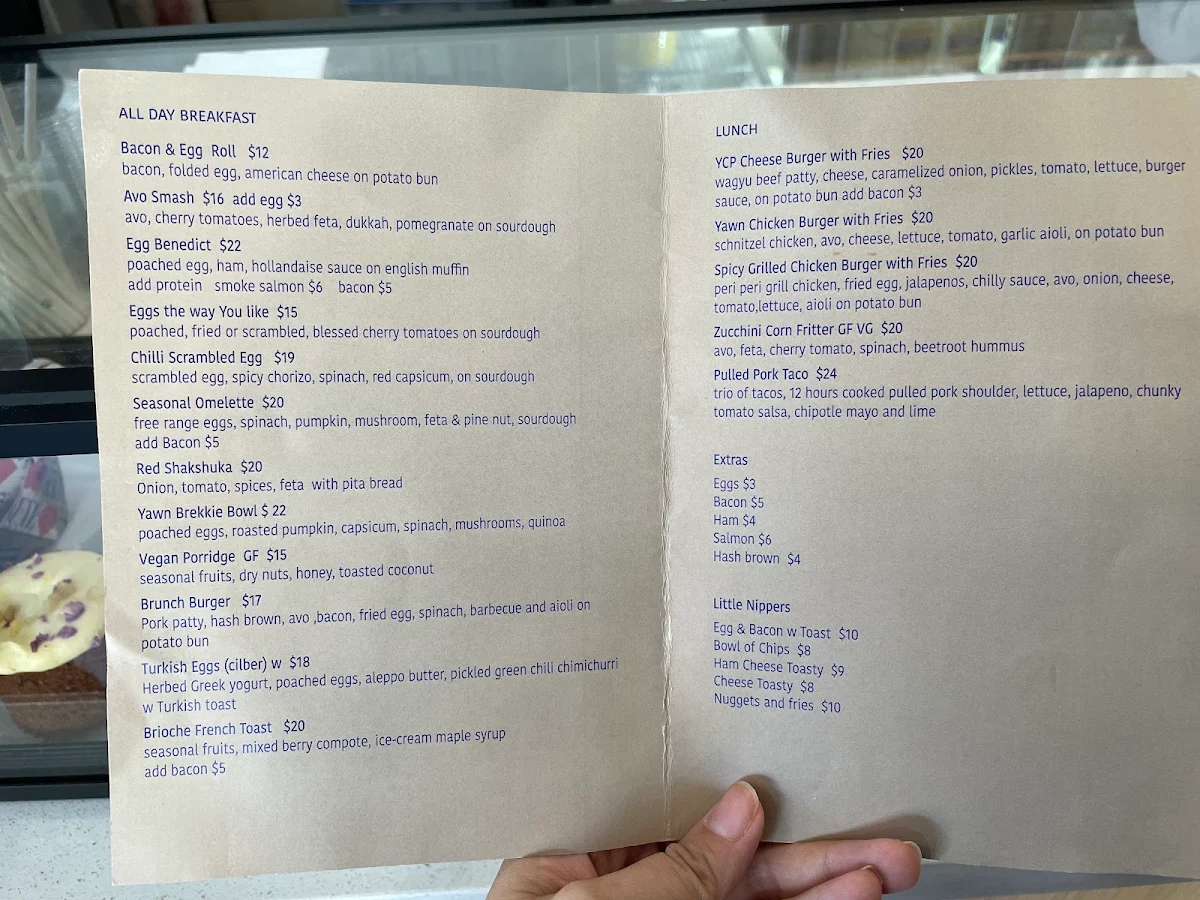 ALL DAY BREAKFAST
Bacon & Egg Roll $12
bacon, folded egg, american cheese on potato bun
Avo Smash $16 add egg $3
avo, cherry tomatoes, herbed feta, dukkah, pomegranate on sourdough
Egg Benedict $22
poached egg, ham, hollandaise sauce on english muffin
add protein smoke salmon $6 bacon $5
Eggs the way You like $15
poached, fried or scrambled, blessed cherry tomatoes on sourdough
Chilli Scrambled Egg $19
scrambled egg, spicy chorizo, spinach, red capsicum, on sourdough
Seasonal Omelette $20
free range eggs, spinach, pumpkin, mushroom, feta & pine nut, sourdough
add Bacon $5
Red Shakshuka $20
Onion, tomato, spices, feta with pita bread
Yawn Brekkie Bowl $ 22
poached eggs, roasted pumpkin, capsicum, spinach, mushrooms, quinoa
Vegan Porridge GF $15
seasonal fruits, dry nuts, honey, toasted coconut
Brunch Burger $17
Pork patty, hash brown, avo ,bacon, fried egg, spinach, barbecue and aioli on
potato bun
Turkish Eggs (cilber) w $18
Herbed Greek yogurt, poached eggs, aleppo butter, pickled green chili chimichurri
w Turkish toast
Brioche French Toast $20
seasonal fruits, mixed berry compote, ice-cream maple syrup
add bacon $5
LUNCH
YCP Cheese Burger with Fries $20
wagyu beef patty, cheese, caramelized onion, pickles, tomato, lettuce, burger
sauce, on potato bun add bacon $3
Yawn Chicken Burger with Fries $20
schnitzel chicken, avo, cheese, lettuce, tomato, garlic aioli, on potato bun
Spicy Grilled Chicken Burger with Fries $20
peri peri grill chicken, fried egg, jalapenos, chilly sauce, avo, onion, cheese,
tomato,lettuce, aioli on potato bun
Zucchini Corn Fritter GF VG $20
avo, feta, cherry tomato, spinach, beetroot hummus
Pulled Pork Taco $24
trio of tacos, 12 hours cooked pulled pork shoulder, lettuce, jalapeno, chunky
tomato salsa, chipotle mayo and lime
Extras
Eggs $3
Bacon $5
Ham $4
Salmon $6
Hash brown $4
Little Nippers
Egg & Bacon w Toast $10
Bowl of Chips $8
Ham Cheese Toasty $9
Cheese Toasty $8
Nuggets and fries $10